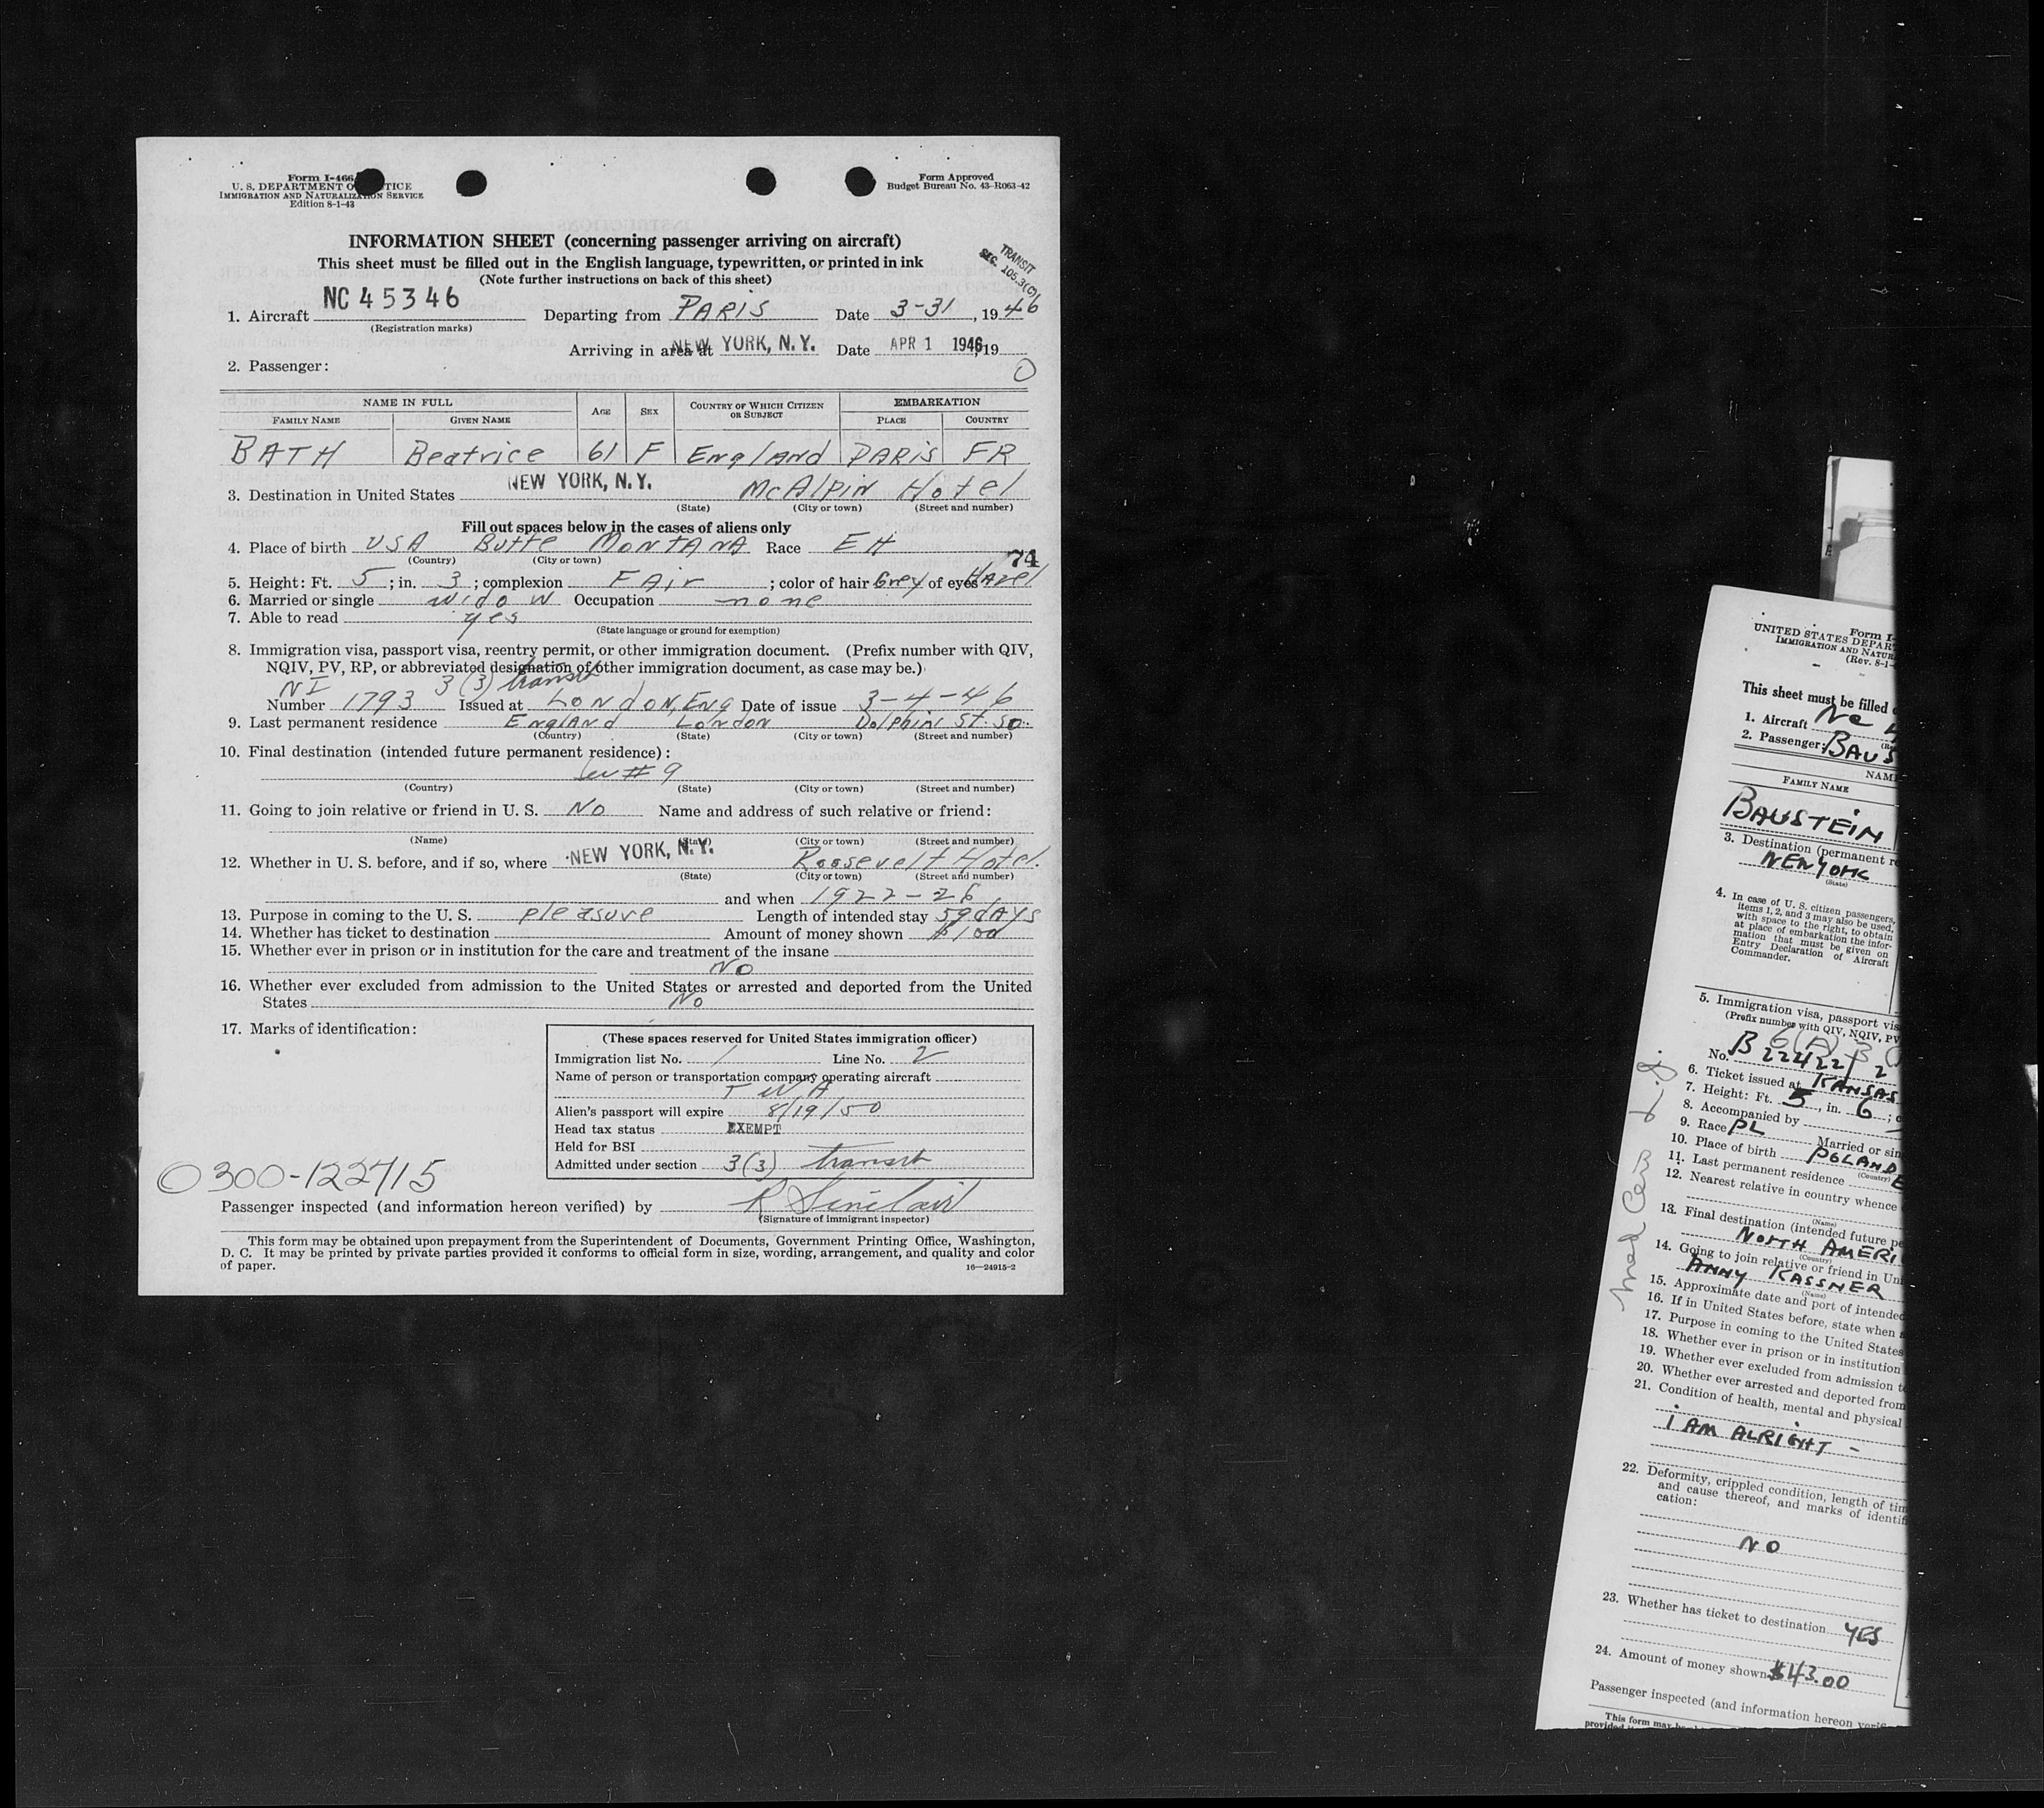 Form I-466
U. S. DEPARTMENT O TICE
IMMIGRATION AND NATURALIZATION SERVICE
Edition 8-1-43
Form Approved
Budget Bureau No. 43-R063-42
INFORMATION SHEET (concerning passenger arriving on aircraft)
This sheet must be filled out in the English language, typewritten, or printed in ink
(Note further instructions on back of this sheet)
TRANSIT
SEC. 105.3(C)
1. Aircraft NC 45346 Departing from PARIS Date 3-31, 1946
(Registration marks)
Arriving in area at NEW YORK, N.Y. Date APR 1 1946, 19
2. Passenger: 0
NAME IN FULL AGE SEX COUNTRY OF WHICH CITIZEN OR SUBJECT EMBARKATION
FAMILY NAME GIVEN NAME PLACE COUNTRY
BATH Beatrice 61 F England PARIS FR
3. Destination in United States NEW YORK, N.Y. McAlpin Hotel
(State) (City or town) (Street and number)
Fill out spaces below in the cases of aliens only
4. Place of birth USA Butte MONTANA Race EH
(Country) (City or town)
74
5. Height: Ft. 5; in. 3; complexion FAir; color of hair Grey of eyes Hazel
6. Married or single widow Occupation none
7. Able to read yes
(State language or ground for exemption)
8. Immigration visa, passport visa, reentry permit, or other immigration document. (Prefix number with QIV,
NQIV, PV, RP, or abbreviated designation of other immigration document, as case may be.)
NI 3(3) transit
Number 1793 Issued at London, Eng Date of issue 3-4-46
9. Last permanent residence England London Dolphin St. Sq.
(Country) (State) (City or town) (Street and number)
10. Final destination (intended future permanent residence):
# 9
(Country) (State) (City or town) (Street and number)
11. Going to join relative or friend in U. S. No Name and address of such relative or friend:
(Name) (State) (City or town) (Street and number)
12. Whether in U. S. before, and if so, where NEW YORK, N.Y. Roosevelt Hotel.
(State) (City or town) (Street and number)
and when 1922-26
13. Purpose in coming to the U. S. pleasure Length of intended stay 59 days
14. Whether has ticket to destination Amount of money shown $100
15. Whether ever in prison or in institution for the care and treatment of the insane
NO
16. Whether ever excluded from admission to the United States or arrested and deported from the United
States No
17. Marks of identification:
(These spaces reserved for United States immigration officer)
Immigration list No. 1 Line No. 2
Name of person or transportation company operating aircraft
TWA
Alien's passport will expire 8/19/50
Head tax status EXEMPT
Held for BSI
Admitted under section 3(3) transit
0300-122715
Passenger inspected (and information hereon verified) by R Sinclair
(Signature of immigrant inspector)
This form may be obtained upon prepayment from the Superintendent of Documents, Government Printing Office, Washington,
D. C. It may be printed by private parties provided it conforms to official form in size, wording, arrangement, and quality and color
of paper. 16—24915-2
Form I-
UNITED STATES DEPAR
IMMIGRATION AND NATUR
(Rev. 8-1-
This sheet must be filled
1. Aircraft Nc 4
2. Passenger: BAUS
NAM
FAMILY NAME
BAUSTEIN
3. Destination (permanent r
NEW YORK
(State)
4. In case of U. S. citizen passengers,
items 1, 2, and 3 may also be used,
with space to the right, to obtain
at place of embarkation the infor-
mation that must be given on
Entry Declaration of Aircraft
Commander.
5. Immigration visa, passport vis
(Prefix number with QIV, NQIV, PV
6(A) 3
No. B 22422/2
6. Ticket issued at KANSAS
7. Height: Ft. 5, in. 6; c
8. Accompanied by
9. Race PL Married or sin
10. Place of birth POLAND
(Country)
11. Last permanent residence E
12. Nearest relative in country whence
(Name)
13. Final destination (intended future pe
NORTH AMERI
(Country)
14. Going to join relative or friend in Uni
ANNY KASSNER
(Name)
15. Approximate date and port of intended
16. If in United States before, state when a
17. Purpose in coming to the United States
18. Whether ever in prison or in institution
19. Whether ever excluded from admission t
20. Whether ever arrested and deported from
21. Condition of health, mental and physical
i AM ALRIGHT -
22. Deformity, crippled condition, length of tim
and cause thereof, and marks of identifi
cation:
NO
23. Whether has ticket to destination YES
24. Amount of money shown $43.00
Passenger inspected (and information hereon verifi
This form may be
provided it